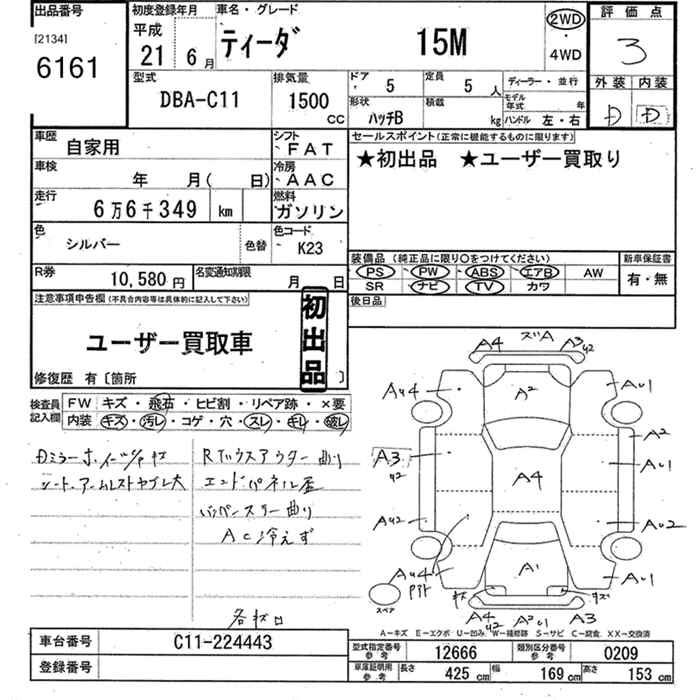 出品番号
[2134]
6161
初度登録年月
平成
21年 6月
車名・グレード
ティーダ 15M
2WD
・
4WD
評価点
3
外装 内装
D D
型式
DBA-C11
排気量
1500
CC
ドア
5
定員
5人
形状
ハッチB
積載
kg
ディーラー・並行
モデル年式 年
ハンドル 左・右
車歴
自家用
シフト
FAT
車検
年 月( 日)
冷房
AAC
走行
6万6千349 km
燃料
ガソリン
色
シルバー
色替
色コード
K23
R券
10,580円
名変通知期限
月 日
セールスポイント(正常に機能するものに限ります)
★初出品 ★ユーザー買取り
装備品 (純正品に限り○をつけてください)
PS PW ABS エアB AW
SR ナビ TV カワ
新車保証書
有・無
後日品
注意事項申告欄(不具合内容等は具体的に記入して下さい)
初出品
ユーザー買取車
修復歴 有〔箇所 〕
検査員記入欄
FW キズ・飛石・ヒビ割・リペア跡・×要
内装 キズ・汚レ・コゲ・穴・スレ・キレ・破レ
シート、アームレストヤブレ大
Rバックスアウター曲り
エンドパネル歪
バンパーステー曲り
AC冷えず
各材ロ
ズレA
A4 A3
U2
AU4 A2 AU1
A2
A3
U2
A4
AU1
AU2 AU2
AU4
A1
AU1
キズ キズ
スペア
A4
U2
A2 A3
A−キズ E−エクボ U−凹み W−補修跡 S−サビ C−腐食 XX−交換済
車台番号 C11-224443
登録番号
型式指定番号
参考
12666
類別区分番号
参考
0209
車庫証明用
参考
長さ 425 cm 幅 169 cm 高さ 153 cm